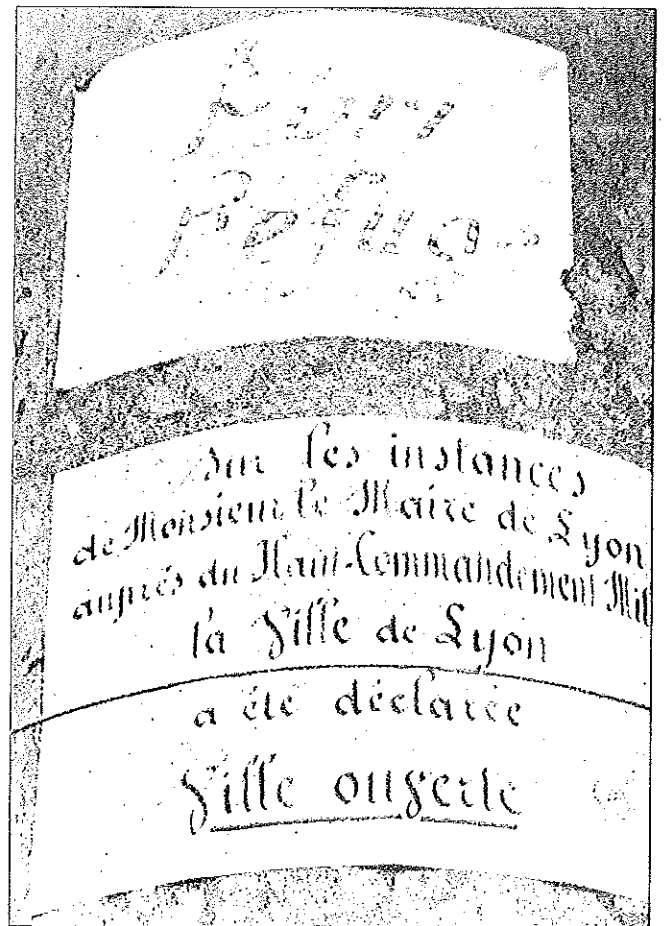 Pour
Refug
Sur les instances
de Monsieur le Maire de Lyon
auprès du Haut-Commandement Mil
la Ville de Lyon
a été déclarée
Ville ouverte